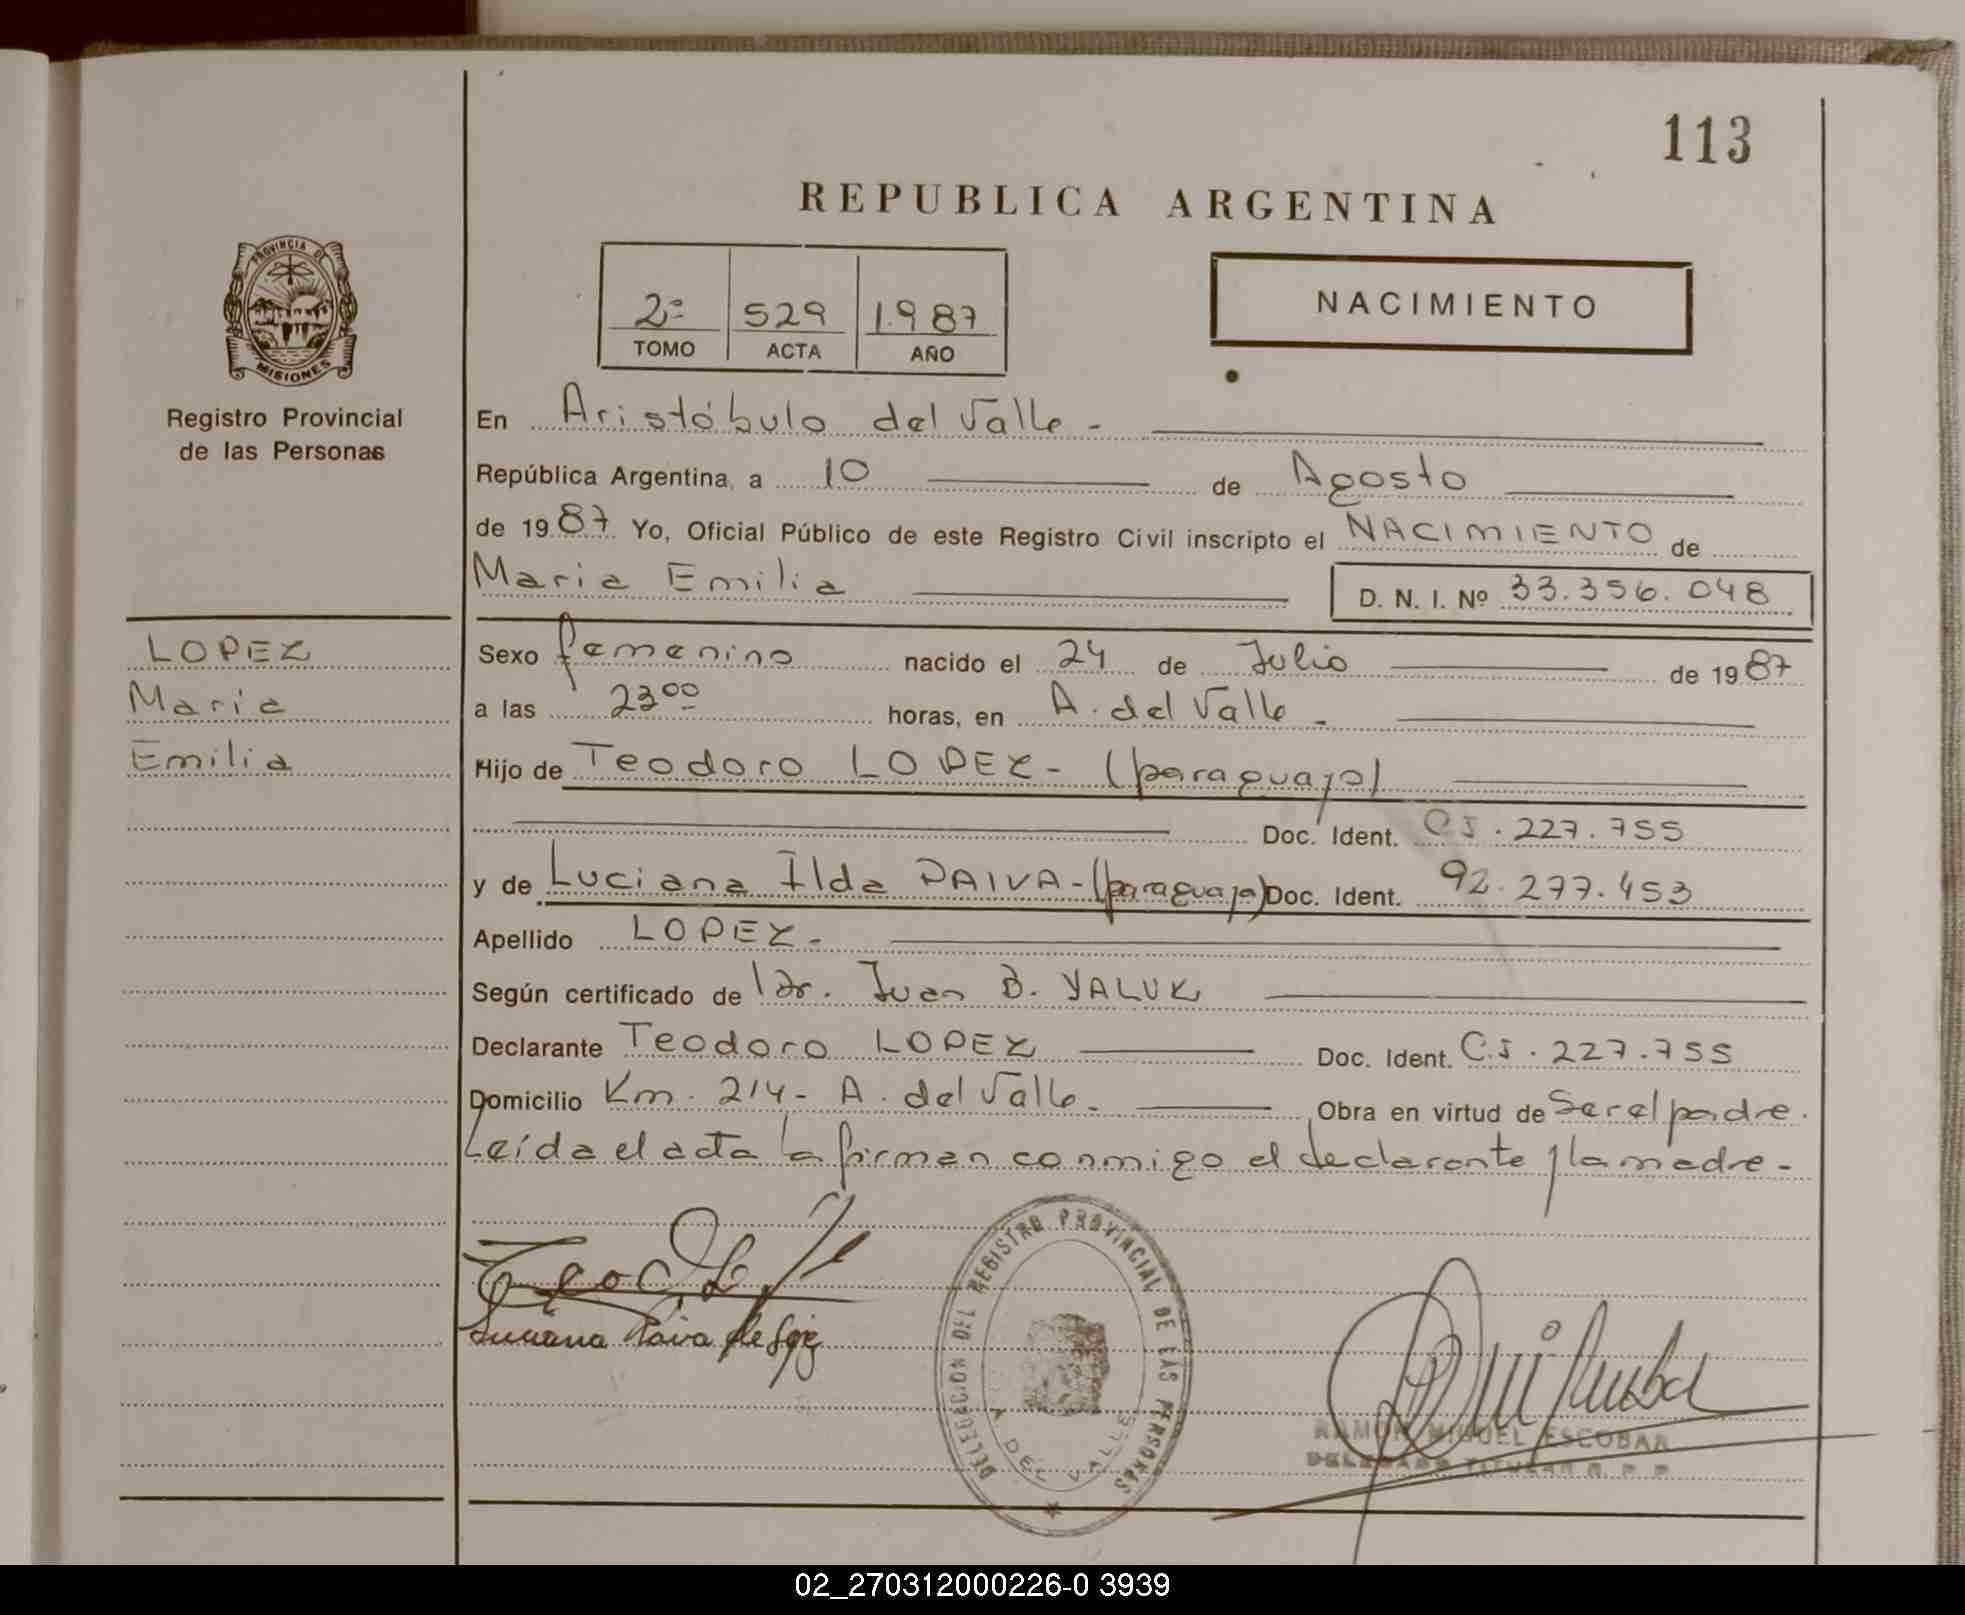 113
REPUBLICA ARGENTINA
PROVINCIA DE
MISIONES
Registro Provincial
de las Personas
2º 529 1.987
TOMO ACTA AÑO
NACIMIENTO
En Aristóbulo del Valle -
República Argentina, a 10 de Agosto
de 1987 Yo, Oficial Público de este Registro Civil inscripto el NACIMIENTO de
Maria Emilia D. N. I. Nº 33.356.048
LOPEZ
Maria
Emilia
Sexo femenino nacido el 24 de Julio de 1987
a las 23ºº horas, en A. del Valle -
Hijo de Teodoro LOPEZ - (paraguayo)
Doc. Ident. C.I. 227.755
y de Luciana Ilda PAIVA - (paraguaya) Doc. Ident. 92.277.453
Apellido LOPEZ -
Según certificado de Dr. Juan B. YALUK
Declarante Teodoro LOPEZ Doc. Ident. C.I. 227.755
Domicilio Km. 214 - A. del Valle - Obra en virtud de Ser el padre.
Leída el acta la firman conmigo el declarante y la madre -
Luciana Paiva de
DELEGACION DEL REGISTRO PROVINCIAL DE LAS PERSONAS
A DEL VALLE
RAMON MIGUEL ESCOBAR
DELEGADO TITULAR R. P. P.
02_270312000226-0 3939